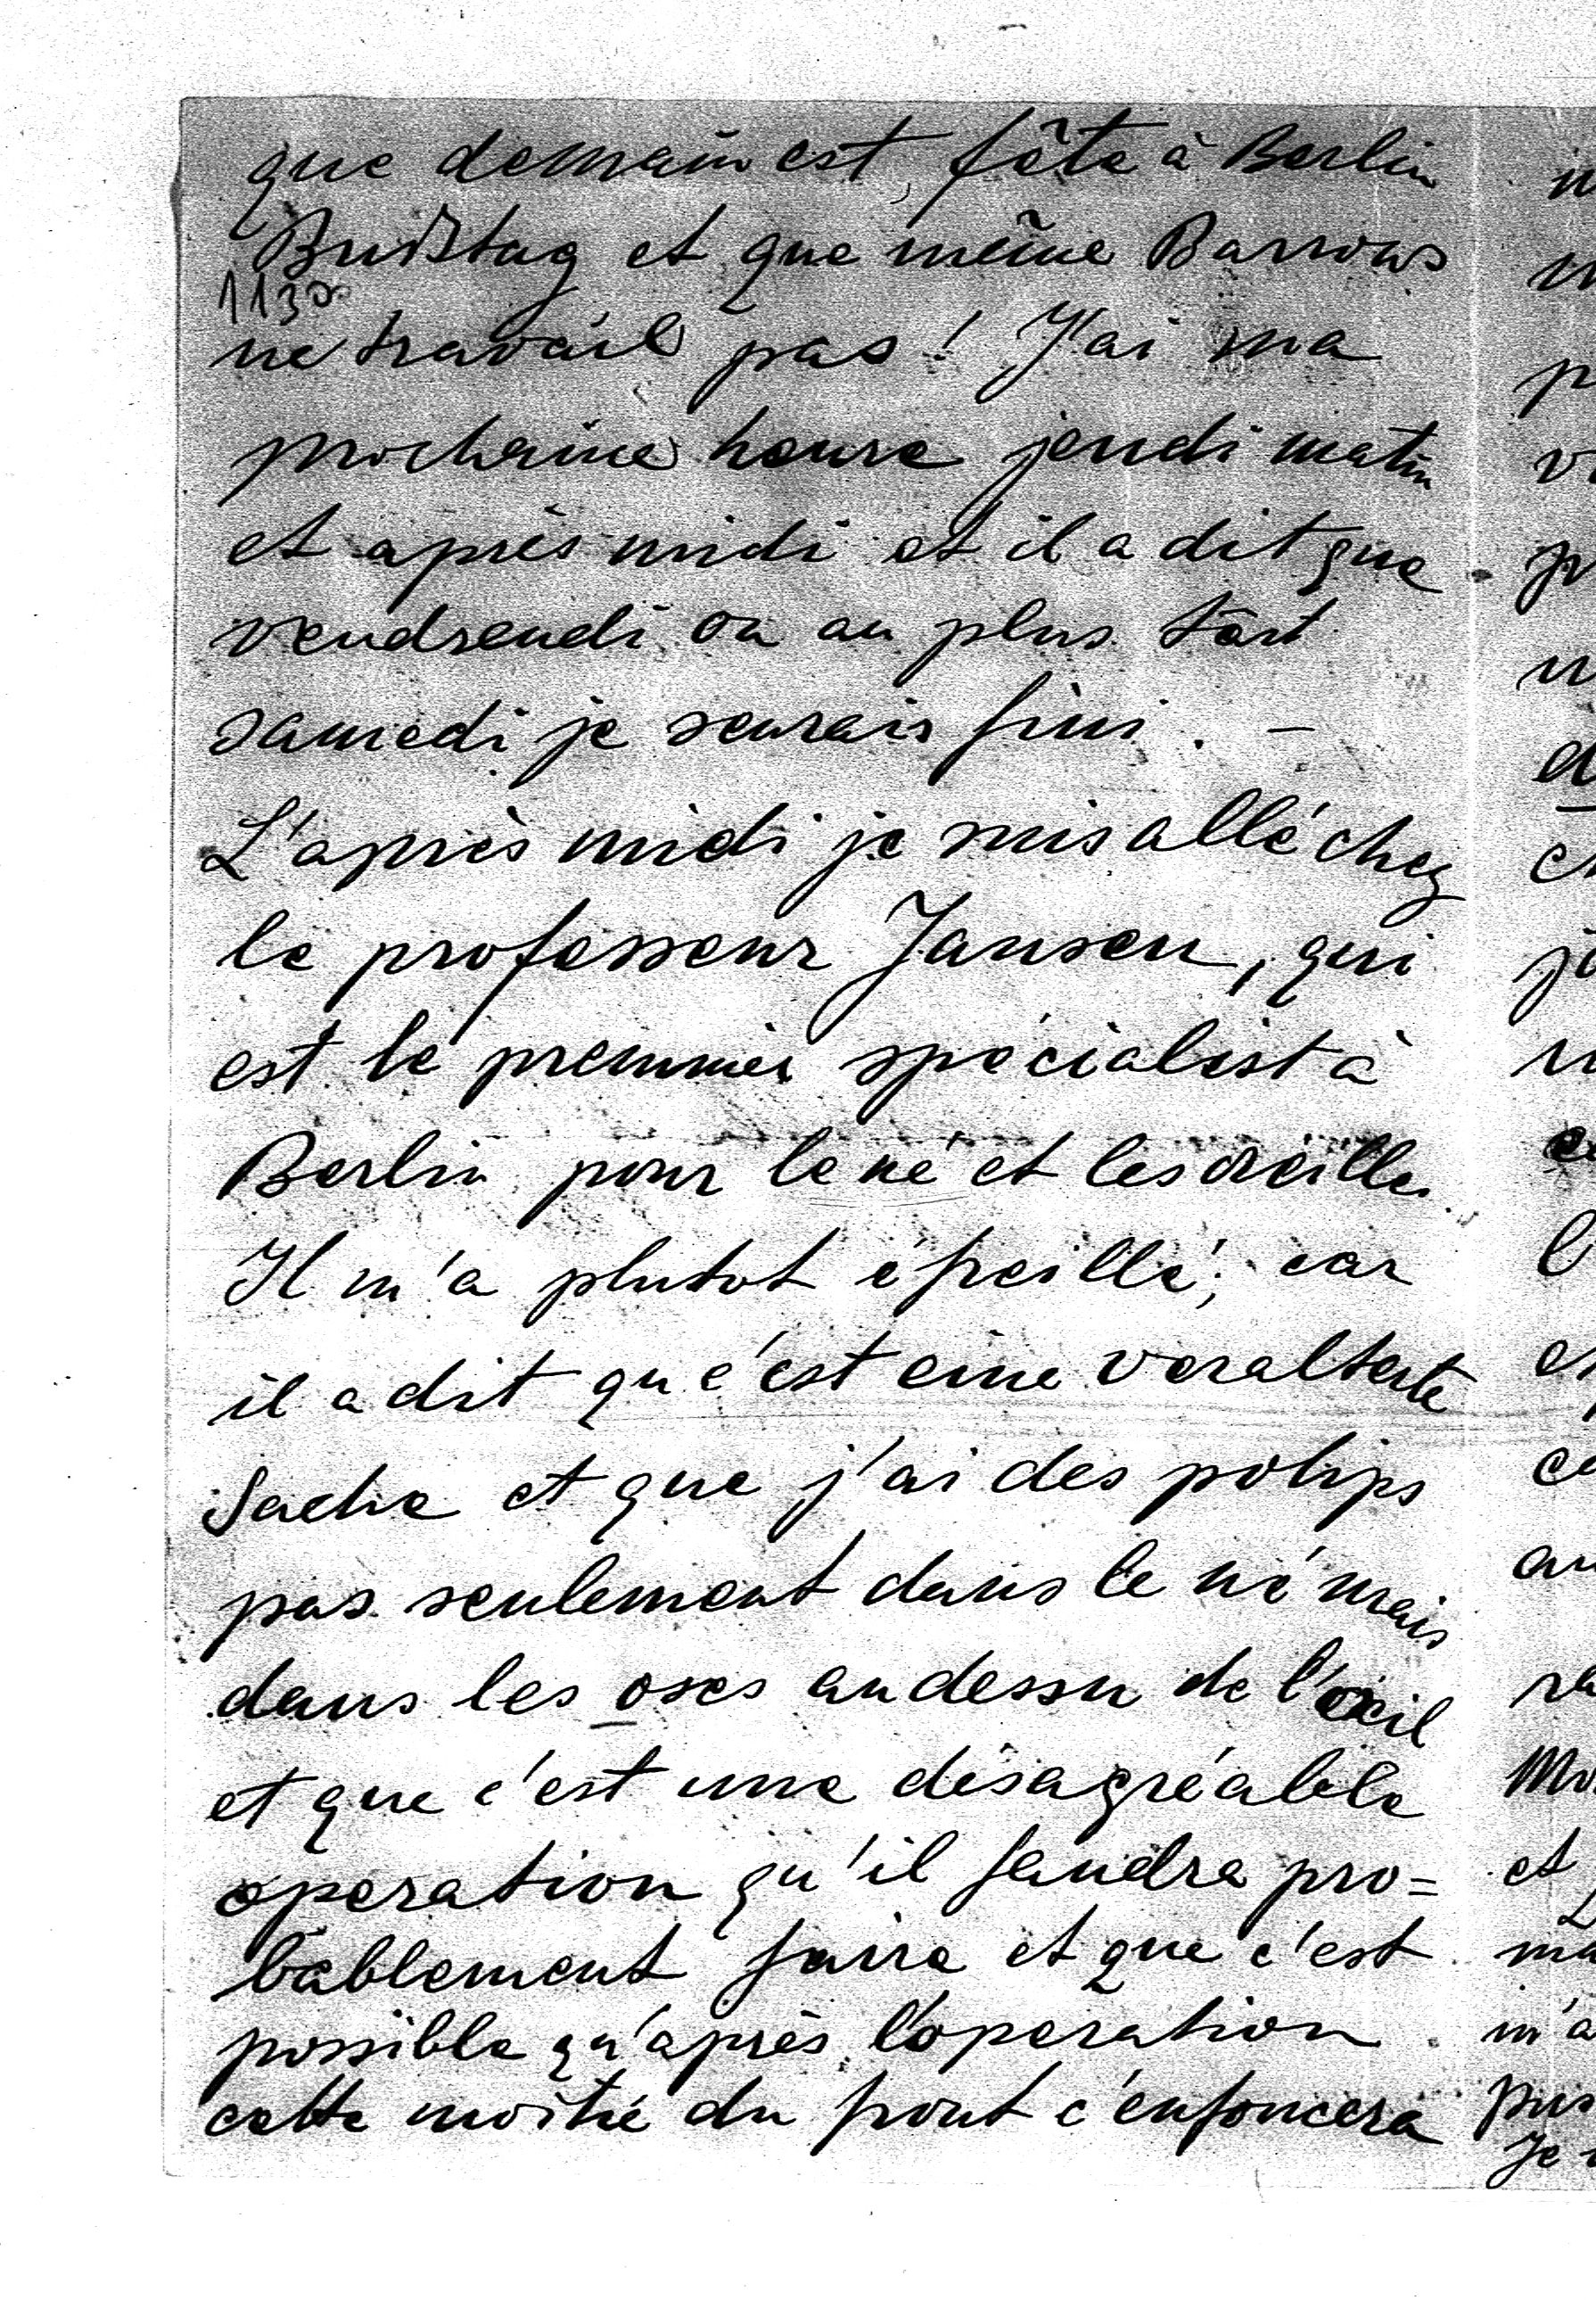 que demain est fête à Berlin
Bußtag et que même Barrows
113
ne travail pas! J'ai ma
prochaine heure jeudi matin
et après midi et il a dit que
vendrendi ou au plus tart
samedi je seurais fini. –
L'après midi je suis allé chez
le professeur Jansen, qui
est le premmier spécialist à
Berlin pour le né et les oreilles
Il m'a plutot épeillé; car
il a dit que c'est eine veraltete
Sache et que j'ai des polips
pas seulement dans le né mais
dans les oses au dessu de l'œil
et que c'est une désagréable
operation qu'il faudra pro=
bablement faire et que c'est
possible qu'après l'operation
cette moitié du front c'enfoncera